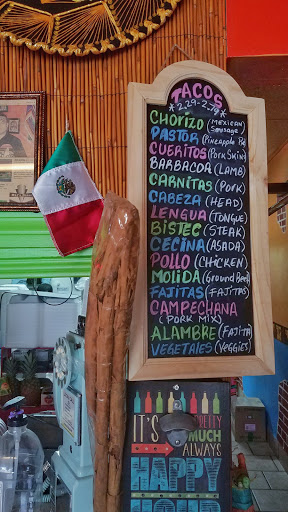 TACOS
*2.29-2.79*
CHORIZO (MEXICAN Sausage)
PASTOR (Pineapple
CUERITOS (Pork Skin)
BARBACOA (LAMB)
CARNITAS (Pork)
CABEZA (HEAD)
LENGUA (TONGUE)
BISTEC (STEAK)
CECINA (ASADA)
POLLO (CHICKEN)
MOLIDA (Ground Beef)
FAJITAS (FAJITAS)
CAMPECHANA
(PORK MIX)
ALAMBRE (FAJITA)
VEGETALES (VEGGIES)
IT'S PRETTY
MUCH
ALWAYS
HAPPY
HOUR